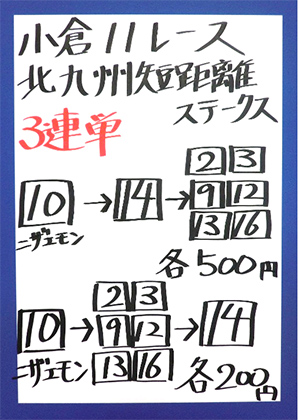 小倉11レース
北九州短距離
ステークス
3連単
10→14→2 3
9 12
13 16
ニザエモン
各500円
2 3
10→9 12→14
13 16
ニザエモン
各200円